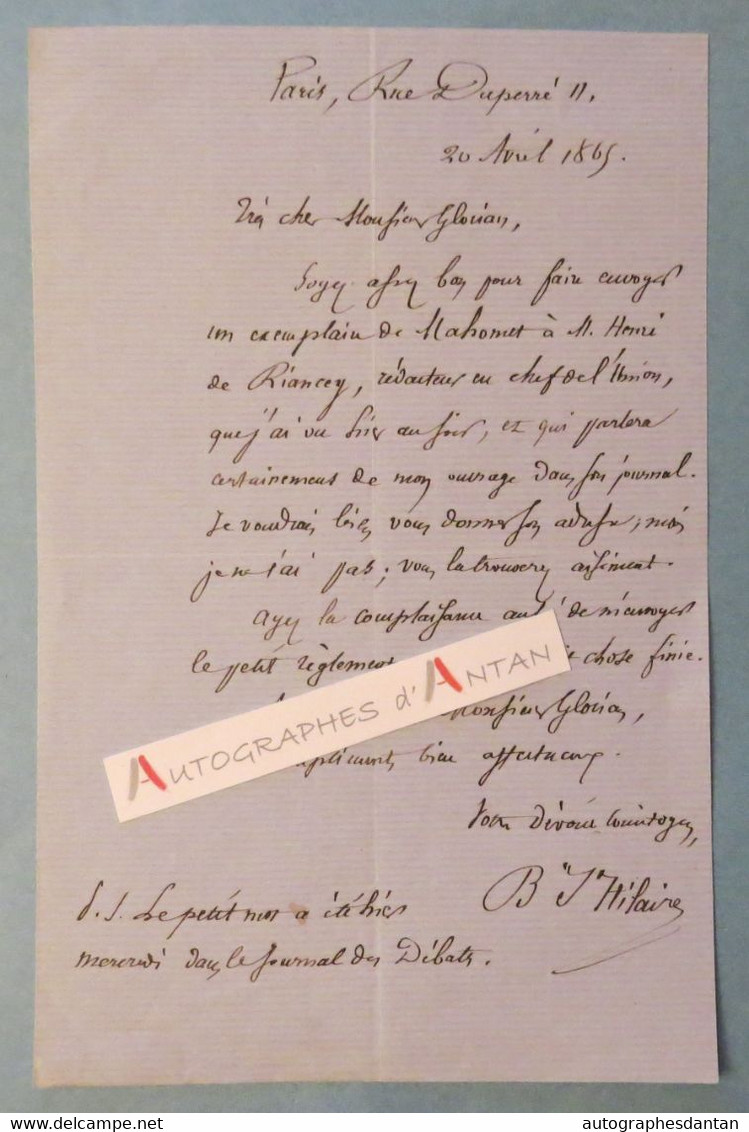 Paris, Rue Duperré 11.
20 Avril 1865.
Très cher Monsieur Glorian,
Soyez assez bon pour faire envoyer
un exemplaire de Mahomet à M. Henri
de Riancey, rédacteur en chef de l'Union,
que j'ai vu hier au soir, et qui parlera
certainement de mon ouvrage dans son journal.
Je voudrais bien vous donner son adresse; mais
je ne l'ai pas; vous la trouverez aisément.
Ayez la complaisance aussi de m'envoyer
le petit règlement chose finie.
AUTOGRAPHES d'ANTAN
Monsieur Glorian,
bien affectueux.
Votre dévoué concitoyen,
By St Hilaire
P. S. Le petit mot a été hier
mercredi dans le Journal des Débats.
autographesdantan